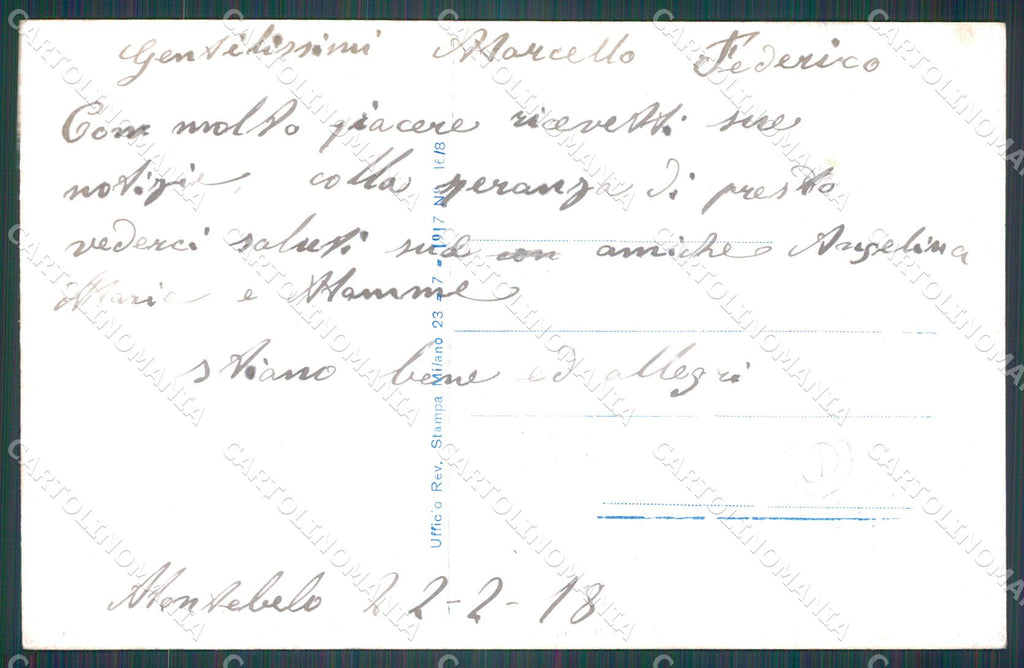 Gentilissimi Marcello Federico
Com molto piacere ricevetti sue
notizie, colla speranza di presto
vederci saluti sue amiche Angelina
Maria e Mamme
stiano bene ed allegri
Montebelo 22-2-18
Ufficio Rev. Stampa Milano 23-7-1917 N. 16/8
CARTOLINOMANIA